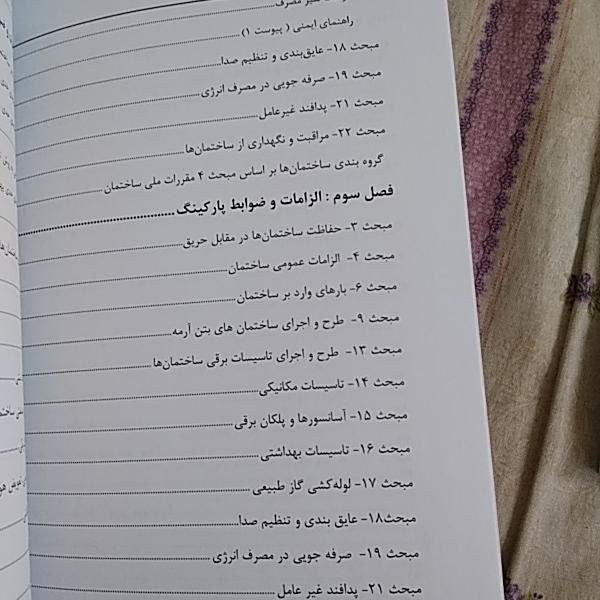 مصرف
راهنمای ایمنی ( پیوست ۱)
مبحث ۱۸- عایق‌بندی و تنظیم صدا
مبحث ۱۹- صرفه جویی در مصرف انرژی
مبحث ۲۱- پدافند غیرعامل
مبحث ۲۲- مراقبت و نگهداری از ساختمان‌ها
گروه بندی ساختمان‌ها بر اساس مبحث ۴ مقررات ملی ساختمان
فصل سوم : الزامات و ضوابط پارکینگ
مبحث ۳- حفاظت ساختمان‌ها در مقابل حریق
مبحث ۴- الزامات عمومی ساختمان
مبحث ۶- بارهای وارد بر ساختمان
مبحث ۹- طرح و اجرای ساختمان های بتن آرمه
مبحث ۱۳- طرح و اجرای تاسیسات برقی ساختمان‌ها
مبحث ۱۴- تاسیسات مکانیکی
مبحث ۱۵- آسانسورها و پلکان برقی
مبحث ۱۶- تاسیسات بهداشتی
مبحث ۱۷- لوله‌کشی گاز طبیعی
مبحث۱۸- عایق بندی و تنظیم صدا
مبحث ۱۹- صرفه جویی در مصرف انرژی
مبحث ۲۱- پدافند غیر عامل